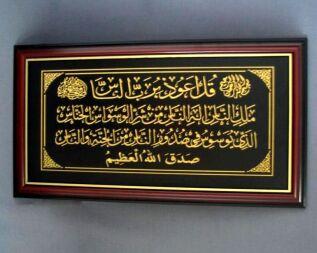 قل أعوذ برب الناس
ملك الناس إله الناس من شر الوسواس الخناس
الذي يوسوس في صدور الناس من الجنة والناس
صدق الله العظيم